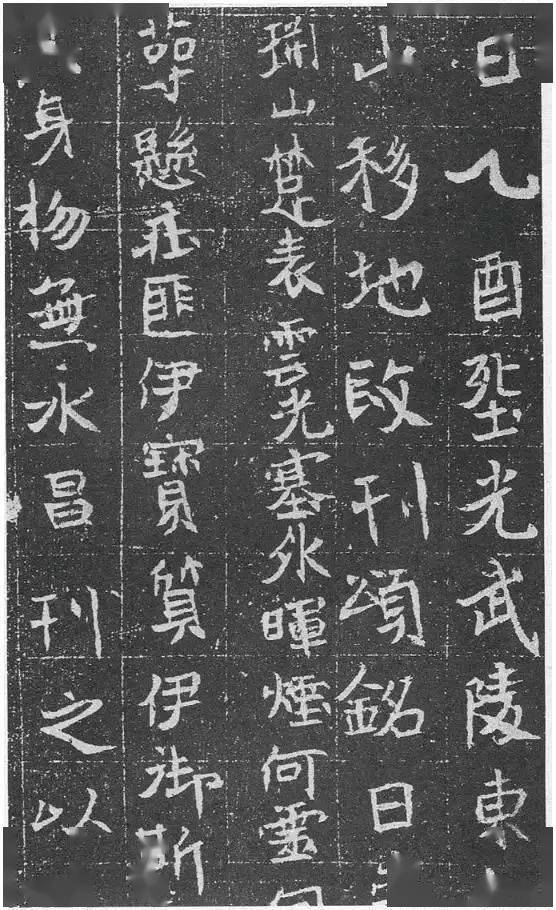 日乙酉塟光武陵東
山移地改刊頌銘曰
荆山楚表雲光塞外暉煙何靈
萼懸荘匪伊寶質伊御斯
身物無永昌刊之以